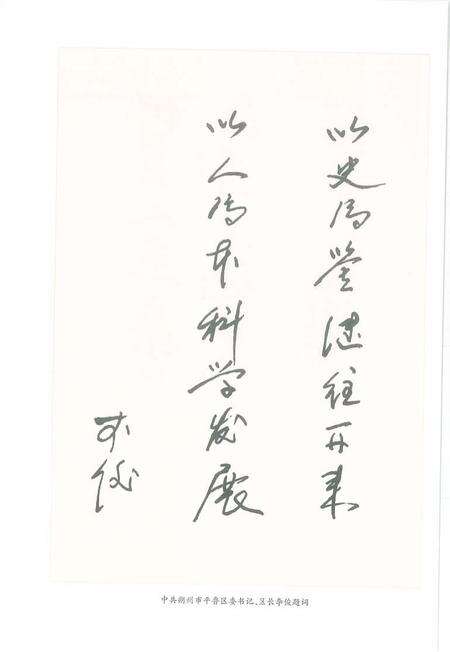 以史为鉴继往开来
以人为本科学发展
李俊
中共朔州市平鲁区委书记、区长李俊题词